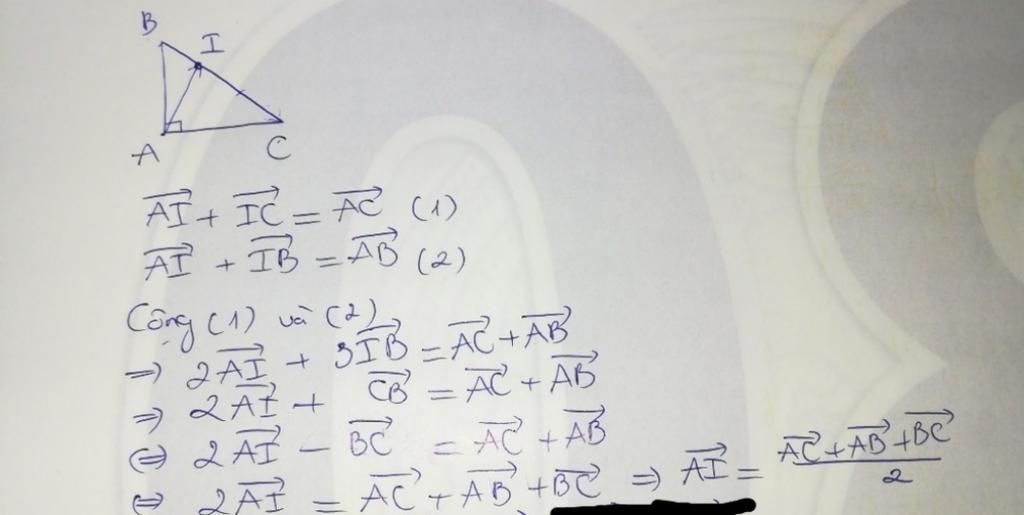 B
I
A
C
$\overrightarrow{AI} + \overrightarrow{IC} = \overrightarrow{AC}$ (1)
$\overrightarrow{AI} + \overrightarrow{IB} = \overrightarrow{AB}$ (2)
Cộng (1) và (2)
⇒ $2\overrightarrow{AI} + 3\overrightarrow{IB} = \overrightarrow{AC} + \overrightarrow{AB}$
⇒ $2\overrightarrow{AI} + \overrightarrow{CB} = \overrightarrow{AC} + \overrightarrow{AB}$
⇔ $2\overrightarrow{AI} - \overrightarrow{BC} = \overrightarrow{AC} + \overrightarrow{AB}$
⇔ $2\overrightarrow{AI} = \overrightarrow{AC} + \overrightarrow{AB} + \overrightarrow{BC}$ ⇒ $\overrightarrow{AI} = \frac{\overrightarrow{AC} + \overrightarrow{AB} + \overrightarrow{BC}}{2}$